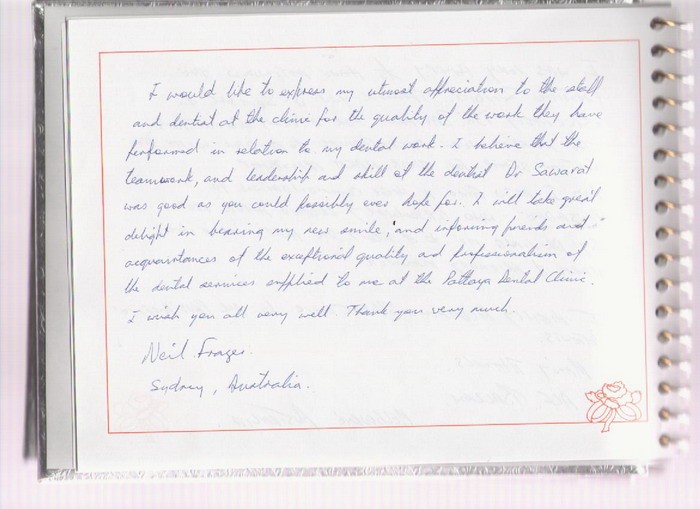 I would like to express my utmost appreciation to the staff
and dentist at the clinic for the quality of the work they have
performed in relation to my dental work. I believe that the
teamwork, and leadership and skill of the dentist Dr Sawarat
was good as you could possibly ever hope for. I will take great
delight in bearing my new smile, and informing friends and
acquaintances of the exceptional quality and professionalism of
the dental services supplied to me at the Pattaya Dental Clinic.
I wish you all very well. Thank you very much.
Neil Frazer.
Sydney, Australia.